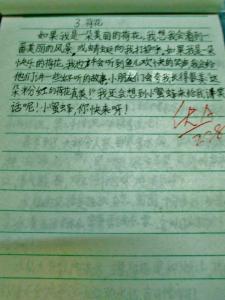 3. 荷花
如果我是一朵美丽的荷花,我想我会看到一
番美丽的风景,或蜻蜓向我打招呼。如果我是一朵
快乐的荷花,我也许会听到鱼儿欢快的笑声,我会给
他们讲一些好听的故事,小朋友们会夸我长得很美:“这
朵粉红的荷花真美!”我还会想到小蜜蜂来给我讲笑
话呢!小蜜蜂,你快来呀!